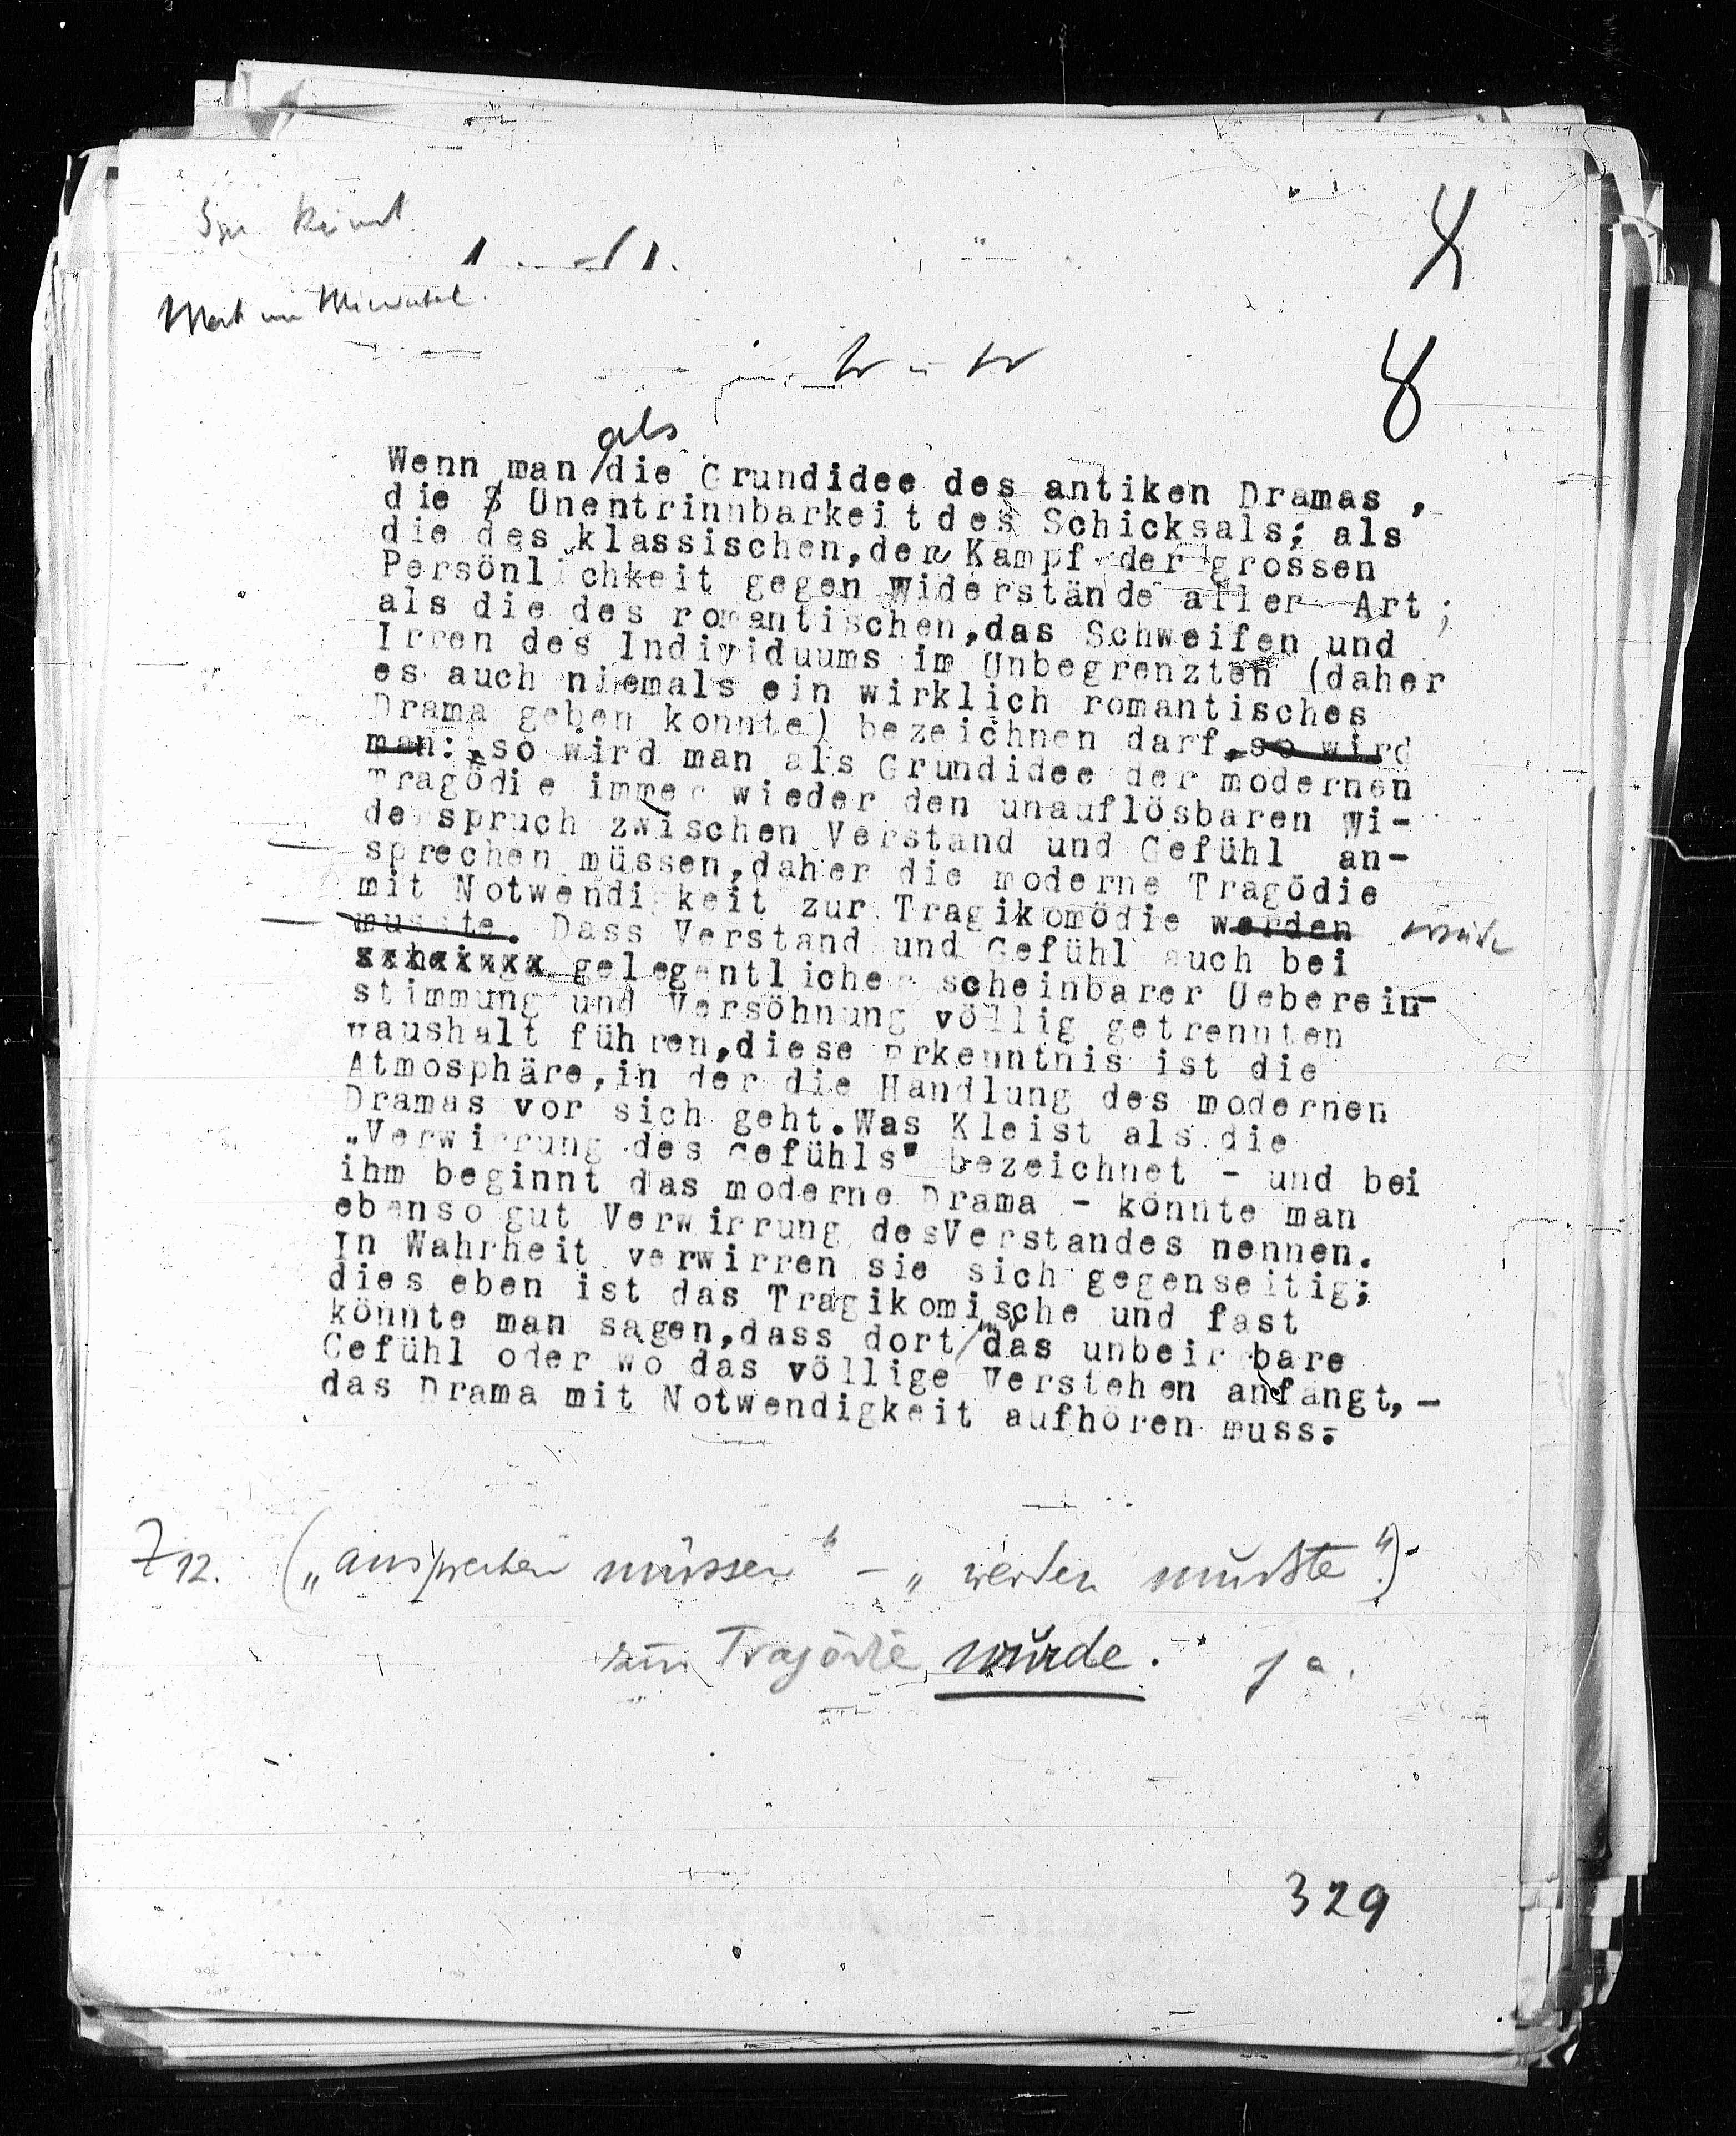 4
8
als
Wenn man die Grundidee des antiken Dramas ,
die Unentrinnbarkeit des Schicksals; als
die des klassischen,den Kampf der grossen
Persönlichkeit gegen Widerstände aller Art;
als die des romantischen,das Schweifen und
Irren des Individuums im Unbegrenzten (daher
es auch niemals ein wirklich romantisches
Drama geben konnte) bezeichnen darf,so wird
man: so wird man als Grundidee der modernen
Tragödie immer wieder den unauflösbaren Wi-
derspruch zwischen Verstand und Gefühl an-
sprechen müssen,daher die moderne Tragödie
mit Notwendigkeit zur Tragikomödie werden wurde
musste. Dass Verstand und Gefühl auch bei
gelegentlicher scheinbarer Ueberein-
stimmung und Versöhnung völlig getrennten
Haushalt führen,diese Erkenntnis ist die
Atmosphäre,in der die Handlung des modernen
Dramas vor sich geht.Was Kleist als die
„Verwirrung des Gefühls" bezeichnet - und bei
ihm beginnt das moderne Drama - könnte man
ebenso gut Verwirrung desVerstandes nennen.
In Wahrheit verwirren sie sich gegenseitig;
dies eben ist das Tragikomische und fast
könnte man sagen,dass dort wo das unbeirrbare
Gefühl oder wo das völlige Verstehen anfängt,-
das Drama mit Notwendigkeit aufhören muss.
Z 12. („ansprechen müssen" - „werden mußte")
zur Tragödie wurde. ja.
329